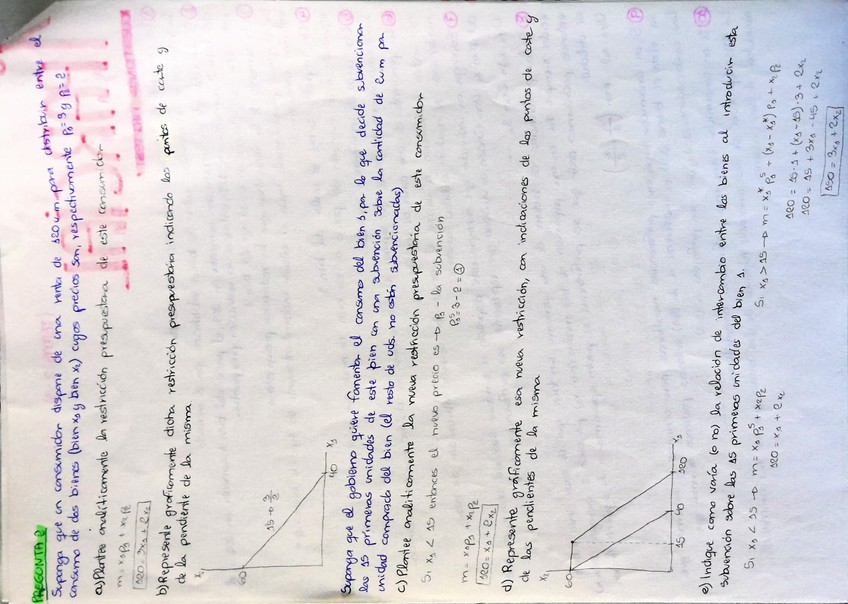 PREGUNTA 2
Suponga que un consumidor dispone de una renta de 120 u.m. para distribuir entre el
consumo de dos bienes (bien x1 y bien x2) cuyos precios son, respectivamente P1=3 y P2=2.
a) Plantee analíticamente la restricción presupuestaria de este consumidor
m = x1P1 + x2P2
120 = 3x1 + 2x2
b) Represente gráficamente dicha restricción presupuestaria indicando los puntos de corte y
de la pendiente de la misma
x2
60
40
x1
Suponga que el gobierno quiere fomentar el consumo del bien 1, por lo que decide subvencionar
las 15 primeras unidades de este bien con una subvención sobre la cantidad de 2u.m por
unidad comprada del bien (el resto de uds. no están subvencionadas)
c) Plantee analíticamente la nueva restricción presupuestaria de este consumidor
Si x1 < 15 entonces el nuevo precio es → P1 - la subvención
P1^s = 3 - 2 = 1
m = x1P1 + x2P2
120 = x1 + 2x2
d) Represente gráficamente esa nueva restricción, con indicaciones de los puntos de corte y
de las pendientes de la misma
x2
60
15 40 120
x1
e) Indique como varía (o no) la relación de intercambio entre los bienes al introducir esta
subvención sobre las 15 primeras unidades del bien 1.
Si x1 < 15 → m = x1P1^s + x2P2
120 = x1 + 2x2
Si x1 > 15 → m = x1* P1^s + (x1 - x1*) P1 + x2P2
120 = 15·1 + (x1 - 15)·3 + 2x2
120 = 15 + 3x1 - 45 + 2x2
150 = 3x1 + 2x2